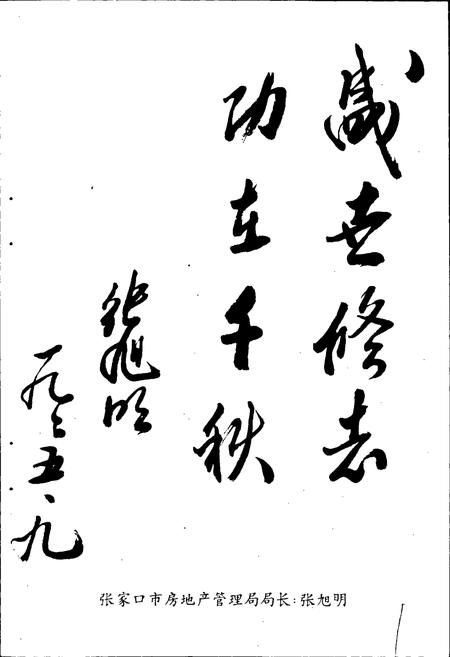 盛世修志
功在千秋
张旭明
一九九三、五、九
张家口市房地产管理局局长:张旭明